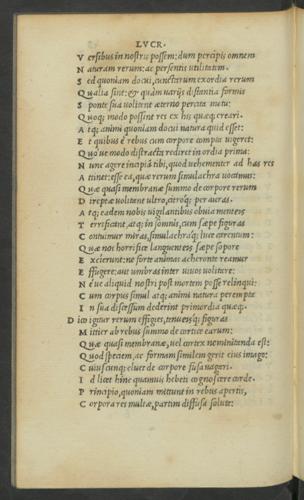 LVCR.
V ersibus in nostris possem: dum percipis omnem
N aturam rerum: ac persentis utilitatem.
S ed quoniam docui, cunctarum exordia rerum
Q ualia sint: & quàm uarijs distantia formis
S ponte sua uolitent aeterno percita motu:
Q uoq; modo possint res ex his quæq; creari.
A tq; animi quoniam docui natura quid esset:
E t quibus è rebus cum corpore compta uigeret:
Q uo'ue modo distracta rediret in ordia prima:
N unc agere incipiā tibi, quod uehementer ad has res
A ttinet: esse ea, quæ rerum simulachra uocamus:
Q uæ quasi membranæ summo de corpore rerum
D ireptæ uolitent ultro, citroq; per auras.
A tq; eadem nobis uigilantibus obuia menteis
T errificent, atq; in somnis, cum sæpe figuras
C ontuimur miras, simulachraq; luce carentum:
Q uæ nos horrifice langenteis sæpe sopore
E xcierunt: ne forte animas acheronte reamur
E ffugere: aut umbras inter uiuos uolitare:
N e'ue aliquid nostri post mortem posse relinqui:
C um corpus simul atq; animi natura perempta
I n sua discessum dederint primordia quæq.
D ico igitur rerum effigies, tenueisq; figuras
M ittier ab rebus summo de cortice earum:
Q uæ quasi membranæ, uel cortex nominitanda est:
Q uod speciem, ac formam similem gerit eius imago:
C uiuscunq; cluet de corpore fusa uagari.
I d licet hinc quamuis hebeti cognoscere corde.
P rincipio, quoniam mittunt in rebus apertis,
C orpora res multæ, partim diffusa solute: